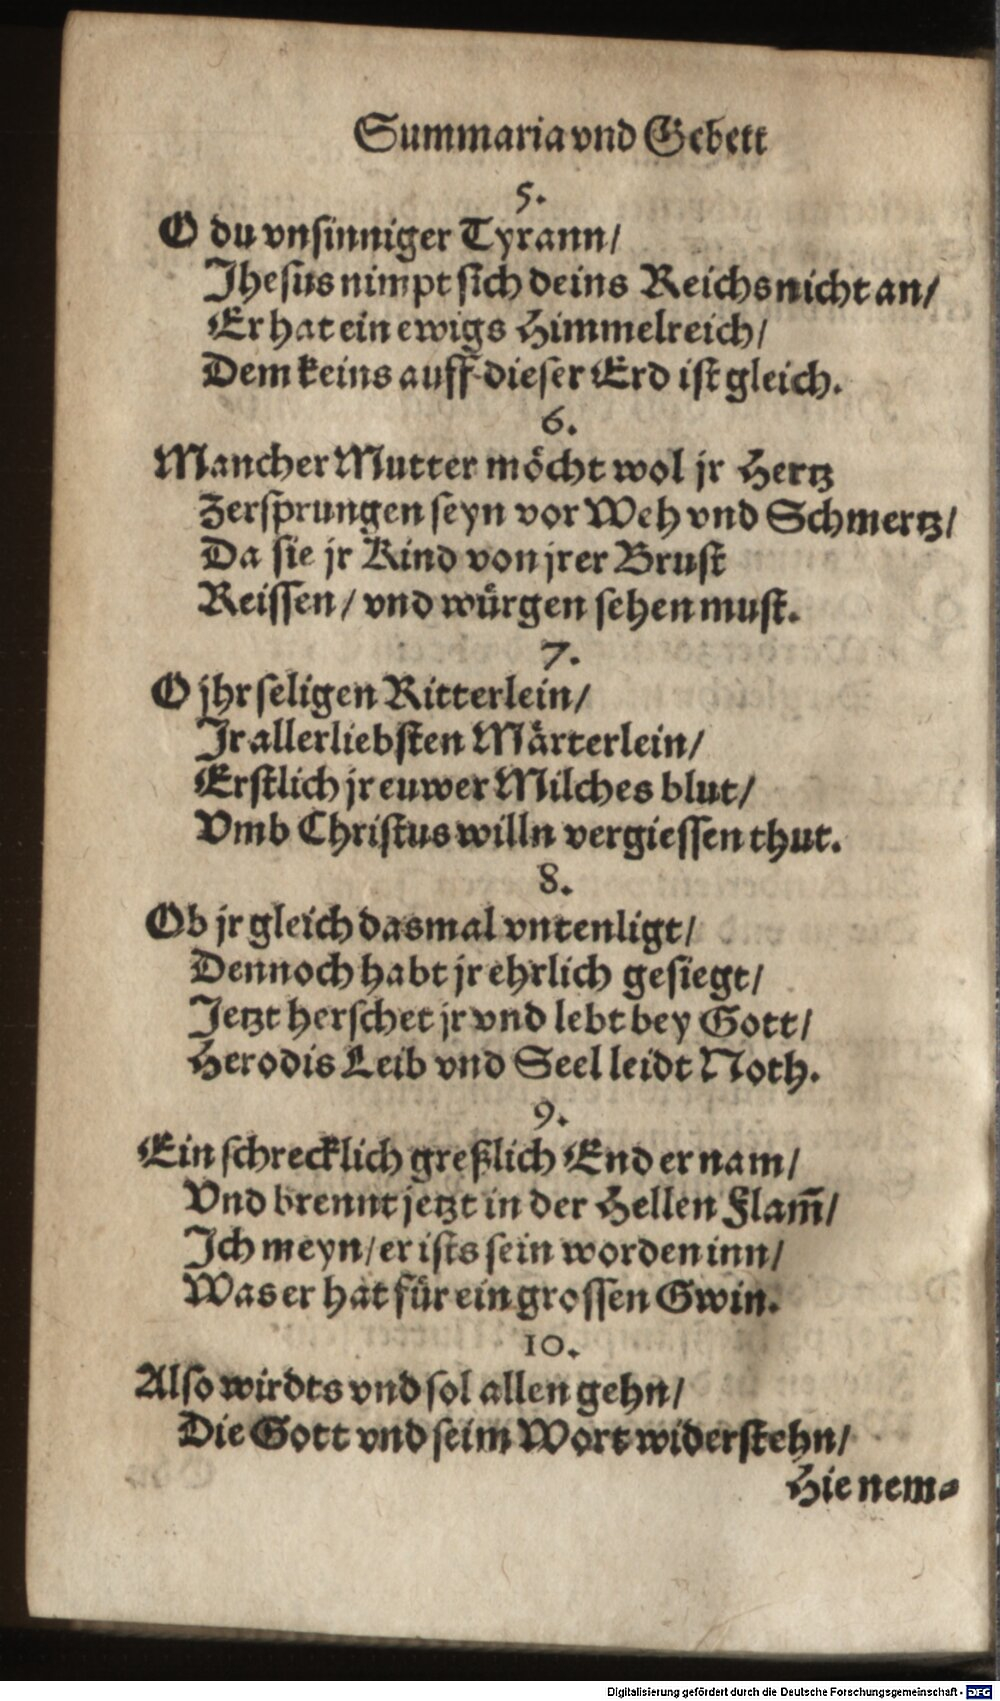 Summaria vnd Gebett
5.
O du vnsinniger Tyrann/
Jhesus nimpt sich deins Reichs nicht an/
Er hat ein ewigs Himmelreich/
Dem keins auff dieser Erd ist gleich.
6.
Mancher Mutter möcht wol jr Hertz
Zersprungen seyn vor Weh vnd Schmertz/
Da sie jr Kind von jrer Brust
Reissen/ vnd würgen sehen must.
7.
O jhr seligen Ritterlein/
Jr allerliebsten Märterlein/
Erstlich jr euwer Milches blut/
Vmb Christus willn vergiessen thut.
8.
Ob jr gleich dasmal vntenligt/
Dennoch habt jr ehrlich gesiegt/
Jetzt herschet jr vnd lebt bey Gott/
Herodis Leib vnd Seel leidt Noth.
9.
Ein schrecklich greßlich End er nam/
Vnd brennt jetzt in der Hellen Flam̃/
Jch meyn/ er ists sein worden inn/
Was er hat für ein grossen Gwin.
10.
Also wirdts vnd sol allen gehn/
Die Gott vnd seim Wort widerstehn/
Hie nem-
Digitalisierung gefördert durch die Deutsche Forschungsgemeinschaft - DFG